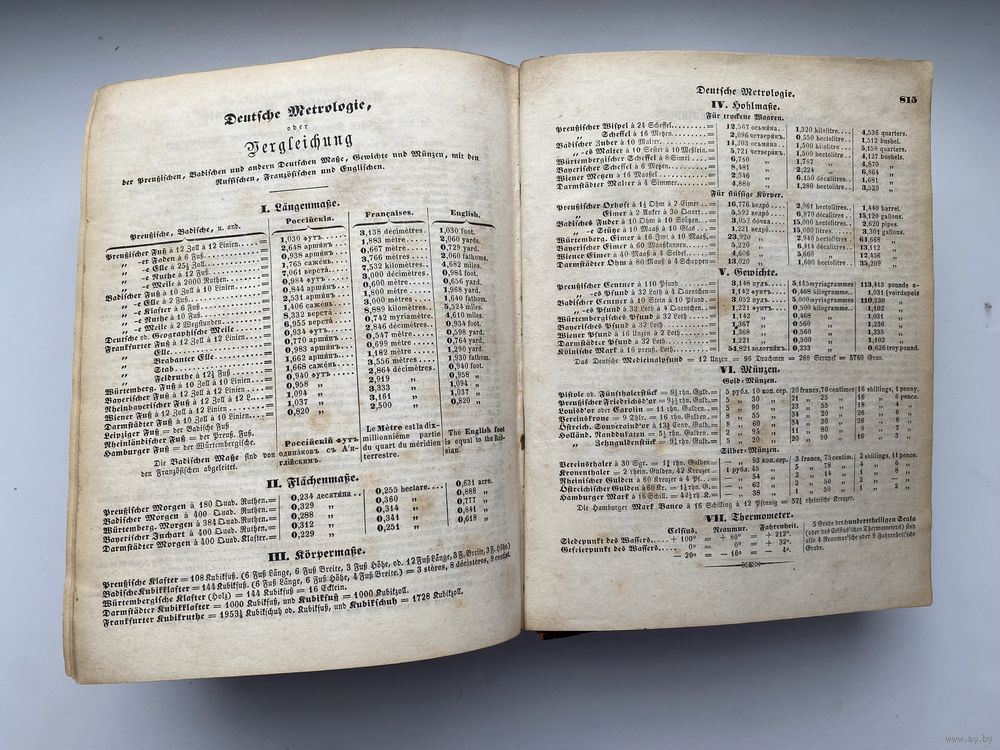 Deutsche Metrologie,
oder
Vergleichung
der Preußischen, Badischen und andern Deutschen Maße, Gewichte und Münzen, mit den
Russischen, Französischen und Englischen.
I. Längenmaße.
Preußische, Badische, u. and. Россейскія. Françaises. English.
Preußischer Fuß à 12 Zoll à 12 Linien
„ -er Faden à 6 Fuß
„ -e Elle à 25½ Zoll
„ -e Ruthe à 12 Fuß
„ -e Meile à 2000 Ruthen.
Badischer Fuß à 10 Zoll à 10 Linien.
„ -e Elle à 2 Fuß.
„ -e Klafter à 6 Fuß
„ -e Ruthe à 10 Fuß.
„ -e Meile à 2 Wegstunden.
Deutsche od. Geographische Meile
Frankfurter Fuß à 12 Zoll à 12 Linien.
„ Elle.
„ Brabanter Elle.
„ Stab
„ Feldruthe à 12½ Fuß
Württemberg. Fuß à 10 Zoll à 10 Linien.
Bayerischer Fuß à 12 Zoll à 12 Linien
Rheinbayerischer Fuß à 12 Zoll à 12 L.
Wiener Fuß à 12 Zoll à 12 Linien.
Darmstädter Fuß à 10 Zoll à 10 Linien
Leipziger Fuß = der Badische Fuß.
Rheinländischer Fuß = der Preuß. Fuß.
Hamburger Fuß = der Württembergische.
Die Badischen Maße sind von
den Französischen abgeleitet.
1,030 футъ.
2,648 аршинъ.
0,938 аршинъ.
1,765 сажень.
7,061 верста.
0,984 футъ.
0,844 аршинъ.
2,531 аршинъ.
1,406 сажень.
8,332 верста
6,955 верстъ.
0,934 футъ.
0,770 аршинъ.
0,983 аршинъ.
1,662 аршинъ.
1,668 сажень.
0,940 футъ
0,958 „
1,094 „
1,037 „
0,820 „
Россейскій футъ
одинаковъ съ Ан-
глійскимъ.
3,138 décimètres.
1,883 mètre.
0,667 mètre.
3,766 mètres
7,532 kilomètres.
3,000 décimètres.
0,600 mètre.
1,800 mètre.
3,000 mètres.
8,889 kilomètres.
0,742 myriamètre.
2,846 décimètres.
0,547 mètre.
0,699 mètre.
1,182 mètre.
3,556 mètres.
2,864 décimètres.
2,919 „
3,333 „
3,161 „
2,500 „
Le Mètre est la dix-
millionnième partie
du quart du méridien
terrestre.
1,030 foot.
2,060 yards.
0,729 yard.
2,060 fathoms.
4,682 miles.
0,984 foot.
0,656 yard.
1,968 yard.
1,640 fathom.
5,524 miles.
4,610 miles.
0,934 foot.
0,598 yard.
0,764 yard.
1,290 yard.
1,930 fathom.
0,940 foot.
0,958 „
1,094 „
1,037 „
0,820 „
The English foot
is equal to the Rus-
sian.
II. Flächenmaße.
Preußischer Morgen à 180 Quad. Ruthen. 0,234 десятина 0,255 hectare 0,631 acre.
Badischer Morgen à 400 Quad. Ruthen. 0,329 „ 0,360 „ 0,886 „
Württemberg. Morgen à 384 Quad. Ruthen 0,288 „ 0,314 „ 0,777 „
Bayerischer Juchart à 400 Quad. Ruthen. 0,312 „ 0,341 „ 0,841 „
Darmstädter Morgen à 400 Quad. Klafter. 0,229 „ 0,251 „ 0,618 „
III. Körpermaße.
Preußische Klafter = 108 Kubikfuß. (6 Fuß Länge, 6 Fuß Breite, 3 Fuß Höhe, ob. 12 Fuß Länge, 3 F. Breite, 3 F. Höhe)
Badische Kubikklafter = 144 Kubikfuß. (6 Fuß Länge, 6 Fuß Breite, 4 Fuß Breite.) = 3 stères, 8 décistères, 9 centist.
Württembergische Klafter (Holz) = 144 Kubikfuß = 16 Ecklein.
Darmstädter Kubikklafter = 1000 Kubikfuß, und Kubikfuß = 1000 Kubikzoll.
Frankfurter Kubikruthe = 1953½ Kubikschuh ob. Kubikfuß, und Kubikschuh = 1728 Kubikzoll.
Deutsche Metrologie. 815
IV. Hohlmaße.
Für trockene Waaren.
Preußischer Wispel à 24 Scheffel 12,567 осьмина. 1,320 kilolitre 4,536 quarters.
„ Scheffel à 16 Metzen. 2,096 четверикъ. 0,550 hectolitre 1,512 bushel.
Badischer Zuber à 10 Malter. 14,303 осьмина. 1,500 kilolitre 5,158 quarters.
„ -es Malter à 10 Sester à 10 Meßlein. 5,721 четверикъ. 1,500 hectolitre 4,127 bushels.
Württembergischer Scheffel à 8 Simri 6,760 „ 1,787 „ 4,870 „
Bayerischer Scheffel à 6 Metzen. 8,481 „ 2,224 „ 6,864 „
Wiener Metzen à 16 Maaßel 2,346 „ 6,150 décalitres. 1,681 „
Darmstädter Malter à 4 Simmer. 4,880 „ 1,280 hectolitre 3,520 „
Für flüssige Körper.
Preußischer Oxhoft à 1½ Ohm à 2 Eimer 16,776 ведро. 2,061 hectolitre 1,440 barrel.
„ Eimer à 2 Anker à 30 Quart. 5,592 ведро. 6,870 décalitres 15,120 gallons.
Badisches Fuder à 10 Ohm à 10 Stützen. 3,052 боченъ. 15,000 hectolitre. 5,720 pipes.
„ -e Stütze à 10 Maaß à 10 Glas 1,221 ведро. 15,000 litres 3,301 gallons.
Württemberg. Eimer à 16 Jmi à 10 Maaß. 23,920 „ 2,940 hectolitre 64,668 „
Bayerischer Eimer à 60 Maaßkannen 5,220 „ 6,414 „
Wiener Eimer à 40 Maaß à 4 Seidel. 4,606 „ 5,660 „ 12,456 „
Darmstädter Ohm à 80 Maaß à 4 Schoppen 13,020 „ 1,600 hectolitre 35,209 „
V. Gewichte.
Preußischer Centner à 110 Pfund 3,148 пудъ. 5,145 myriagrammes 113,413 pounds a-
„ -es Pfund à 32 Loth à 4 Quentchen. 1,142 фунтъ 0,468 kilogramme. 1,031 [voirdupois
Badischer Centner à 10 Stein à 10 Pfund. 3,052 пудъ. 5,000 myriagrammes 110,230 „
„ -es Pfund à 32 Loth à 4 Quentchen. 1,221 „ 0,500 kilogramme. 1,102 „
Württembergisches Pfund à 32 Loth. 1,142 „ 0,468 „ 1,031 „
Bayerisches Pfund à 32 Loth. 1,367 „ 0,560 „ 1,236 „
Wiener Pfund à 16 Unzen à 2 Loth. 1,368 „ 0,560 „ 1,235 „
Darmstädter Pfund à 32 Loth 1,221 „ 0,500 „ 1,102 „
Kölnische Mark à 16 preuß. Loth. 54,821 золотникъ. 0,233 „ 0,626 troy pound.
Das Deutsche Medicinalpfund = 12 Unzen = 96 Drachmen = 288 Skrupel = 5760 Gran.
VI. Münzen.
Gold-Münzen.
Pistole od. Fünfthalerstück = 9½ rhn. Guld. 5 рубл. 10 коп.сер. 20 francs, 70 centimes 16 shillings, 1 penny.
Preußischer Friedrichsd'or = 9¾ rhn. Guld. 5 „ 30 „ 21 „ 25 „ 16 „ 6 pence.
Louisd'or oder Carolin = 11 rhn. Gulden. 5 „ 90 „ 23 „ 55 „ 18 „ 4 „
Vereinskrone = 9 Thlr. = 16 rhn. Gulden. 8 „ 55 „ 34 „ 20 „ 26 „ 8 „
Östreich. Souveraind'or à 13½ Conv. Guld. 8 „ 60 „ 34 „ 30 „ 26 „ 8 „
Holländ. Randdukaten = 5½ rhn. Gulden. 2 „ 95 „ 11 „ 80 „ 9 „ 2 „
„ Zehnguldenstück = 9¾ rhn. Gulden. 5 „ 20 „ 20 „ 90 „ 16 „ 3 „
Silber-Münzen.
Vereinsthaler à 30 Sgr. = 1¾ rhn. Gulden — „ 93 коп.сер. 3 francs, 75 centim. 2 shillings, 11 pence.
Kronenthaler = 2 rhein. Gulden, 42 Kreuzer 1 рубл. 45 „ 5 „ 78 „ 4 „ 6 „
Rheinischer Gulden à 60 Kreuzer à 4 Pf. — „ 54 „ 2 „ 14 „ 1 „ 8 „
Östreichischer Gulden à 60 Kr. = 1⅙ rhn. G. — „ 62 „ 2 „ 50 „ 2 „ „
Hamburger Mark à 16 Schill. = 42½ rh. K. — „ 38 „ 1 „ 50 „ 1 „ „
Die Hamburger Mark Banco à 16 Schilling à 12 Pfennig = 52½ rheinische Kreuzer.
VII. Thermometer.
Celsius. Reaumur. Fahrenheit.
Siedepunkt des Wassers + 100° = + 80° = + 212°.
Gefrierpunkt des Wassers 0° = 0° = + 32°.
— 20° = — 16° = — 4°.
5 Grade der hunderttheiligen Scala
(oder des Celsius'schen Thermometers) sind
also 4 Reaumur'sche oder 9 Fahrenheit'sche
Grade.
www.ay.by